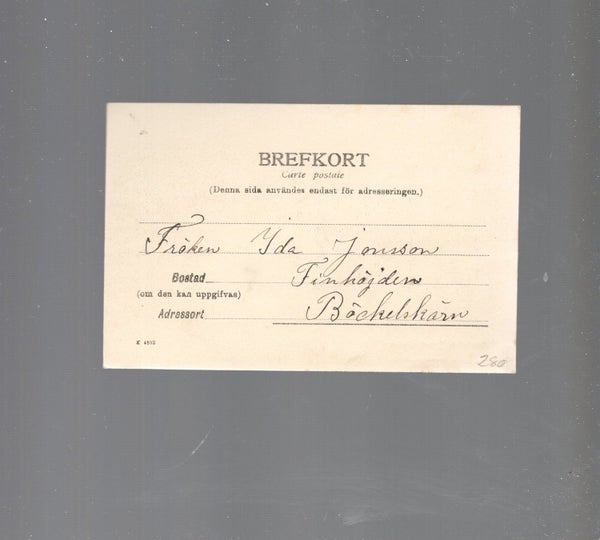 BREFKORT
Carte postale
(Denna sida användes endast för adresseringen.)
Fröken Ida Jonsson
Bostad Finhöjden
(om den kan uppgifvas)
Adressort Böckelskärn
K 4892
280